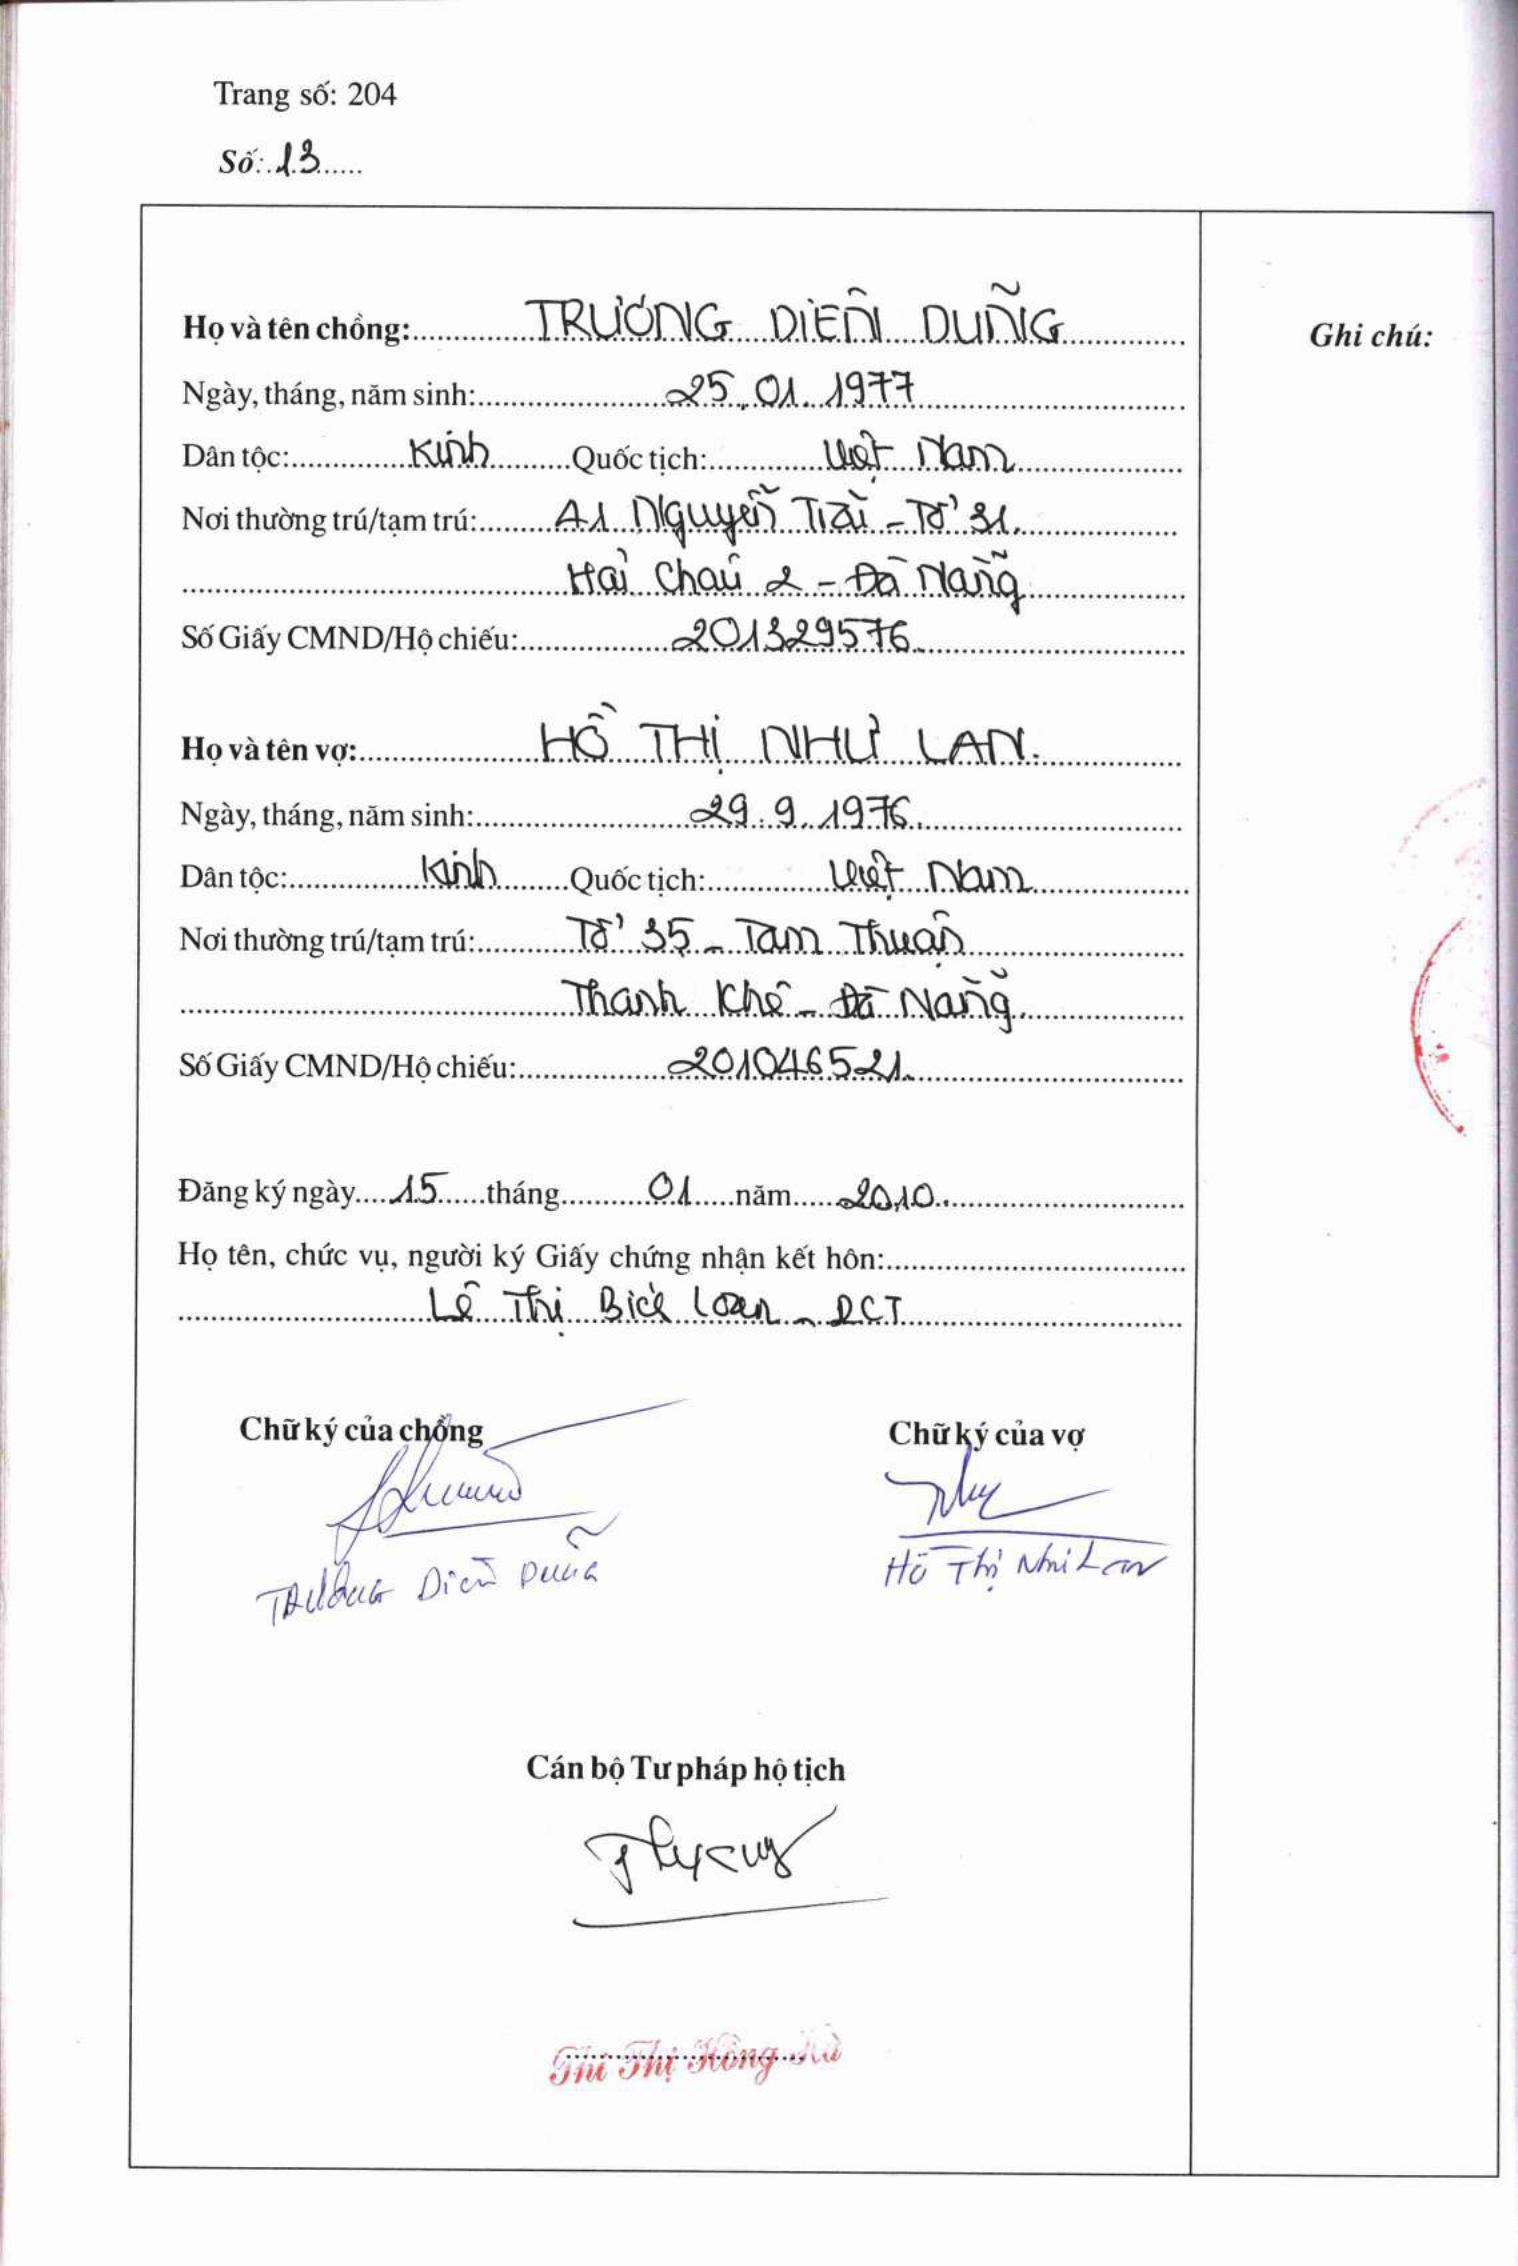 Trang số: 204
Số: 13
Họ và tên chồng: TRƯƠNG DIÊN DŨNG
Ghi chú:
Ngày, tháng, năm sinh: 25.01.1977
Dân tộc: Kinh Quốc tịch: Việt Nam
Nơi thường trú/tạm trú: A1 Nguyễn Trãi - Tổ 31.
Hải Châu 2 - Đà Nẵng
Số Giấy CMND/Hộ chiếu: 201329576.
Họ và tên vợ: HỒ THỊ NHƯ LAN.
Ngày, tháng, năm sinh: 29.9.1976.
Dân tộc: Kinh Quốc tịch: Việt Nam
Nơi thường trú/tạm trú: Tổ 35 - Tam Thuận
Thanh Khê - Đà Nẵng.
Số Giấy CMND/Hộ chiếu: 201046521.
Đăng ký ngày 15 tháng 01 năm 2010.
Họ tên, chức vụ, người ký Giấy chứng nhận kết hôn:
Lê Thị Bích Loan - PCT
Chữ ký của chồng Chữ ký của vợ
TRƯƠNG Diên Dũng Hồ Thị Như Lan
Cán bộ Tư pháp hộ tịch
Thi Thị Hồng Hà